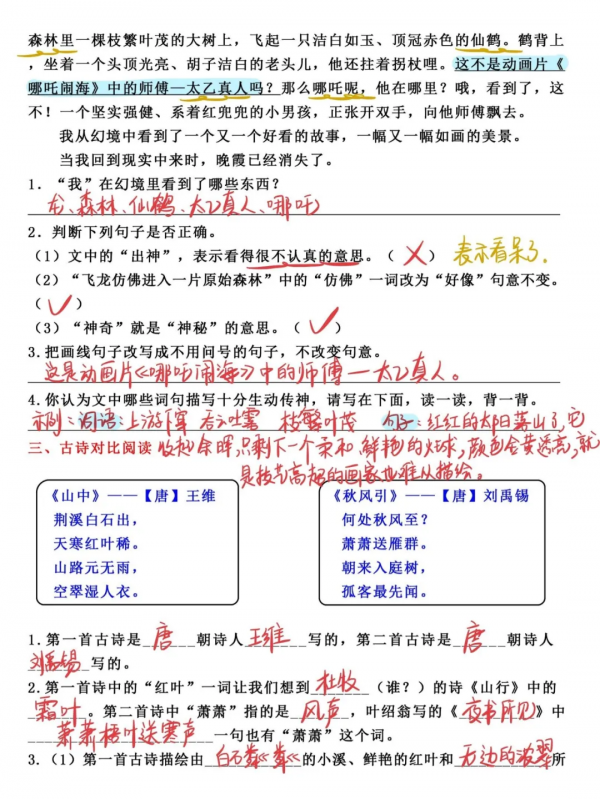 森林里一棵枝繁叶茂的大树上，飞起一只洁白如玉、顶冠赤色的仙鹤。鹤背上
，坐着一个头顶光亮、胡子洁白的老头儿，他还拄着拐杖哩。这不是动画片《
哪吒闹海》中的师傅—太乙真人吗？那么哪吒呢，他在哪里？哦，看到了，这
不！一个坚实强健、系着红兜兜的小男孩，正张开双手，向他师傅飘去。
我从幻境中看到了一个又一个好看的故事，一幅又一幅如画的美景。
当我回到现实中来时，晚霞已经消失了。
1．“我”在幻境里看到了哪些东西？
龙、森林、仙鹤、太乙真人、哪吒
2．判断下列句子是否正确。
（1）文中的“出神”，表示看得很不认真的意思。（ ✗ ） 表示看呆了．
（2）“飞龙仿佛进入一片原始森林”中的“仿佛”一词改为“好像”句意不变。
（ ✓ ）
（3）“神奇”就是“神秘”的意思。（ ✓ ）
3.把画线句子改写成不用问号的句子，不改变句意。
这是动画片《哪吒闹海》中的师傅—太乙真人。
4.你认为文中哪些词句描写十分生动传神，请写在下面，读一读，背一背。
示例：词语：上游下窜 吞云吐雾 枝繁叶茂 句子：红红的太阳落山了，它
三、古诗对比阅读 收起余晖，只剩下一个柔和、鲜艳的火球，颜色金黄透亮，就
是技艺高超的画家也难以描绘。
《山中》——【唐】王维
荆溪白石出，
天寒红叶稀。
山路元无雨，
空翠湿人衣。
《秋风引》——【唐】刘禹锡
何处秋风至？
萧萧送雁群。
朝来入庭树，
孤客最先闻。
1．第一首古诗是 唐 朝诗人 王维 写的，第二首古诗是 唐 朝诗人
刘禹锡 写的。
2．第一首诗中的“红叶”一词让我们想到 杜牧 （谁？）的诗《山行》中的
霜叶 。第二首诗中“萧萧”指的是 风声 ，叶绍翁写的《 夜书所见 》中
萧萧梧叶送寒声 一句也有“萧萧”这个词。
3．（1）第一首古诗描绘由 白石粼粼 的小溪、鲜艳的红叶和 无边的浓翠 所